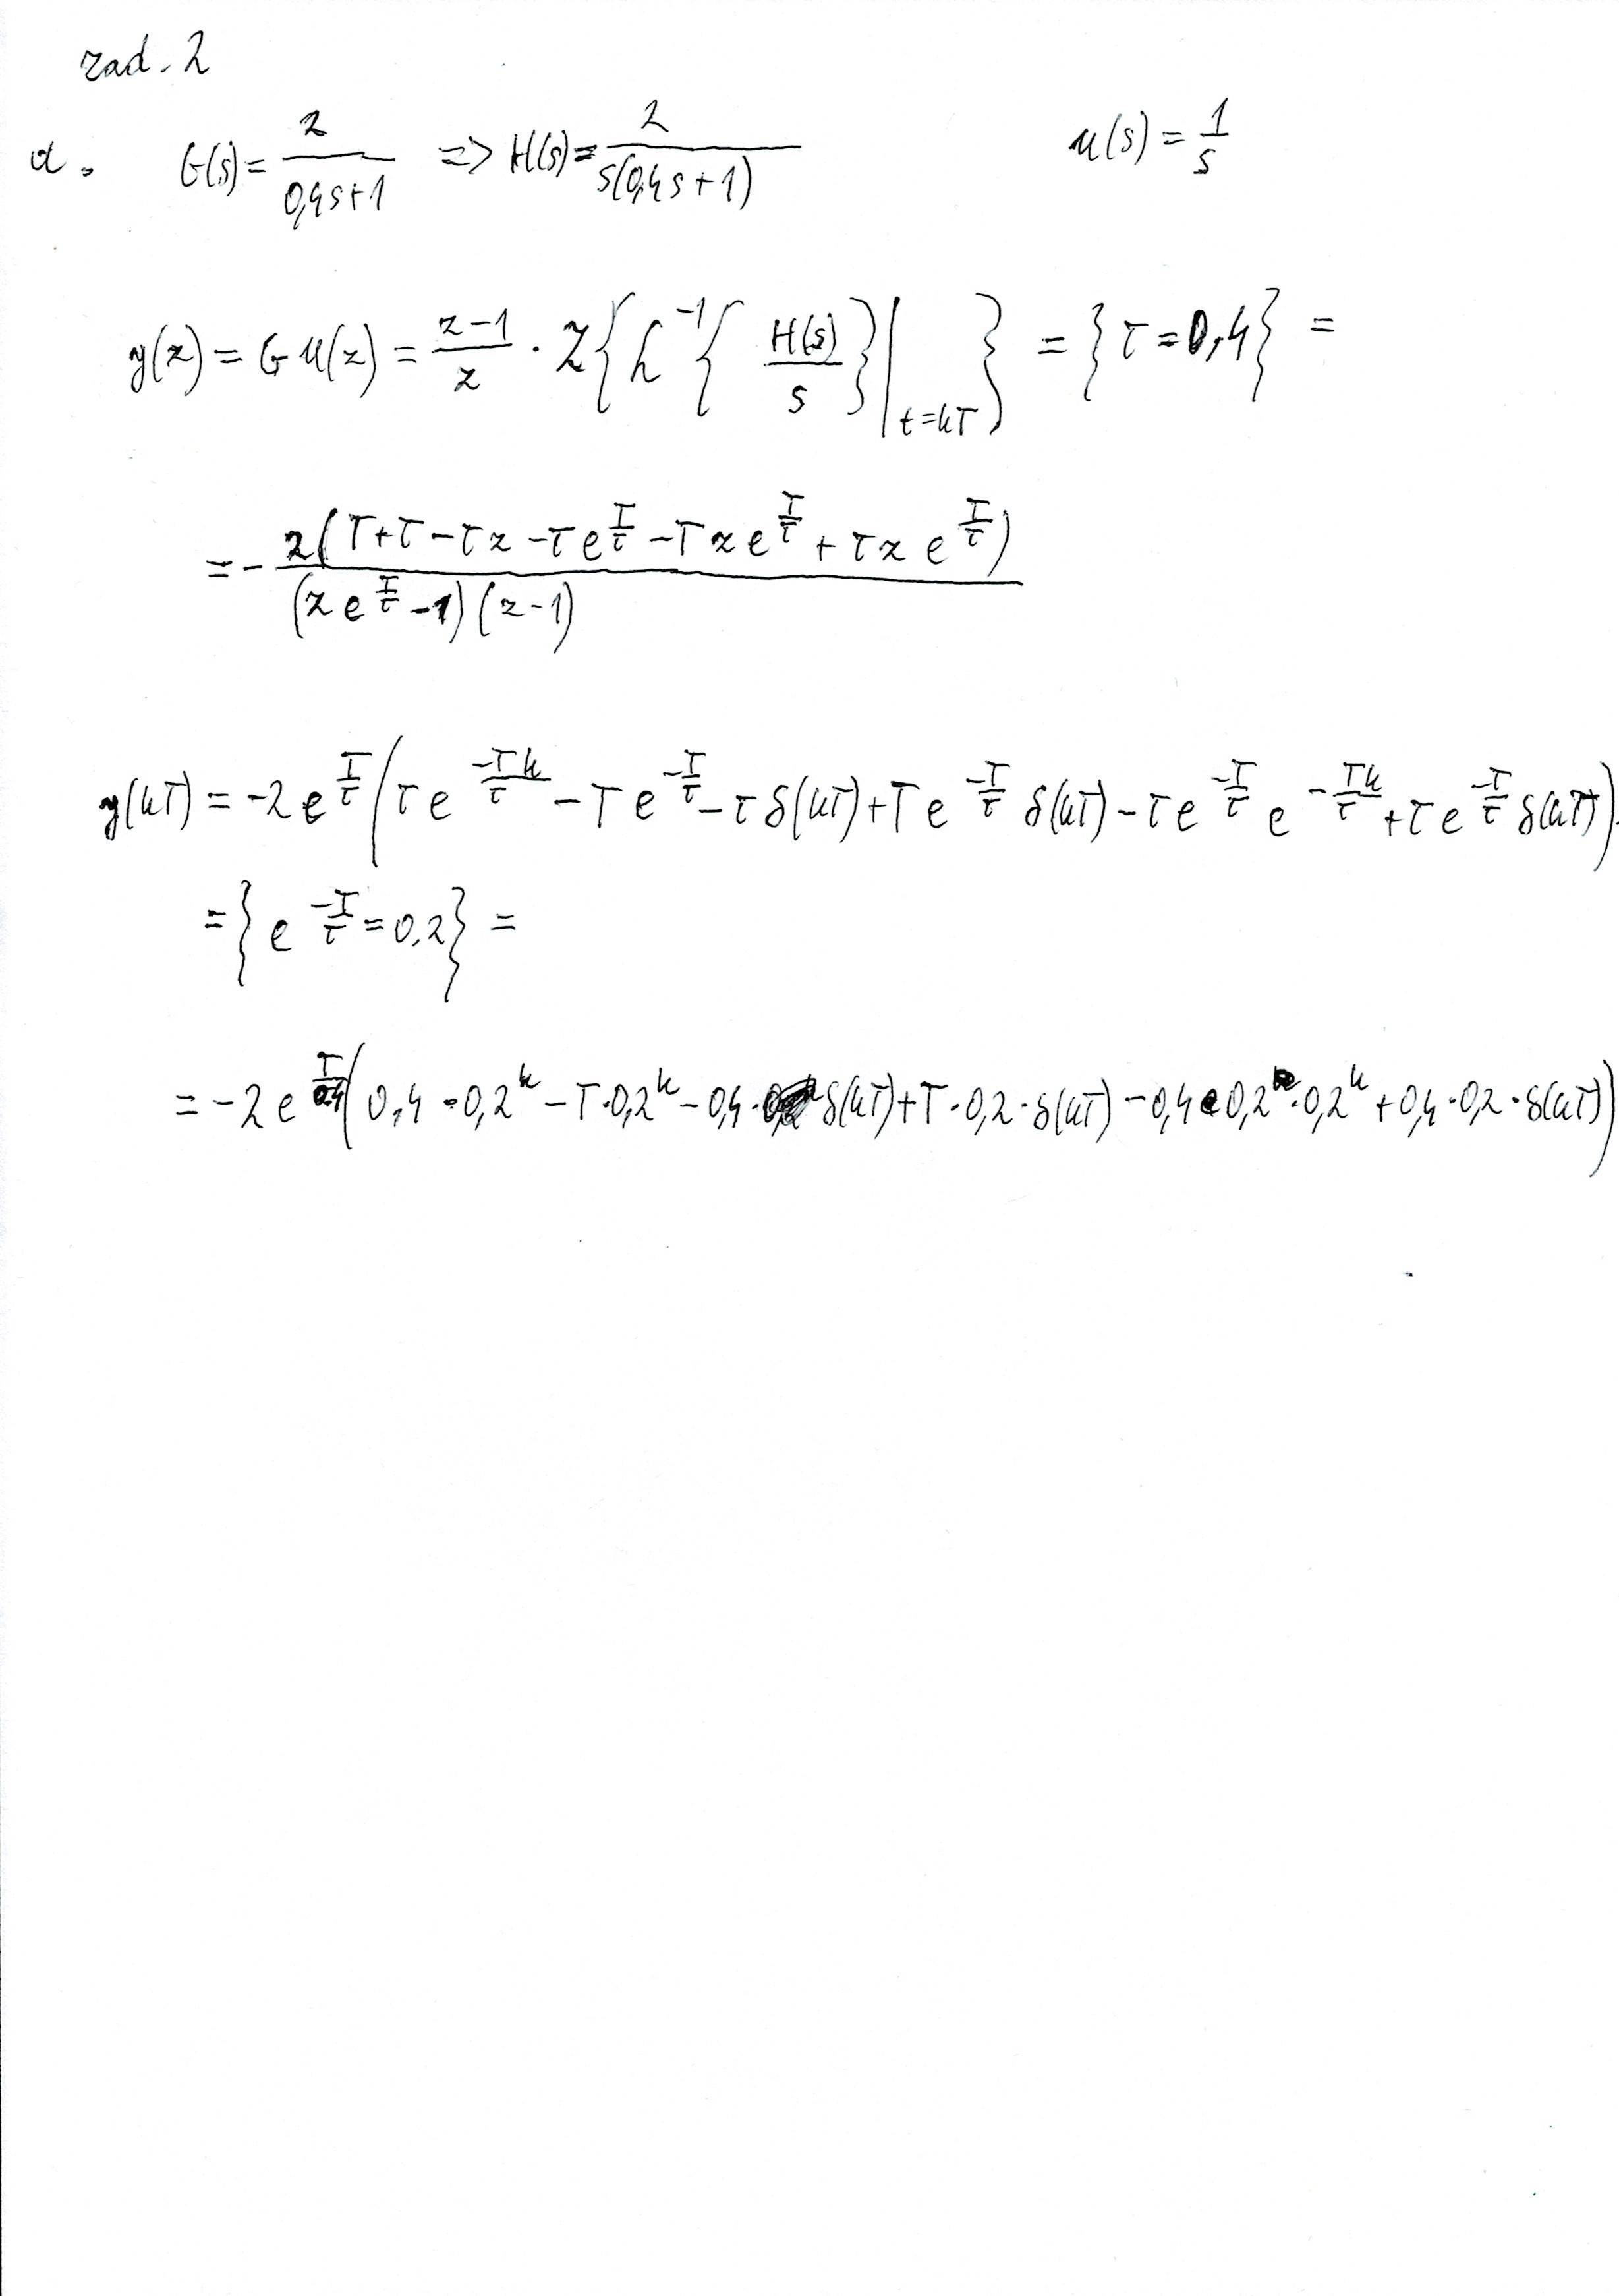 zad. 2
a. G(s) = 2/(0,4s+1) => H(s) = 2/(s(0,4s+1)) u(s) = 1/s
y(z) = G u(z) = (z-1)/z · Z{ L^-1{ H(s)/s }|_{t=kT} } = {τ = 0,4} =
= - 2(T+τ-τz-τe^{T/τ}-Tze^{T/τ}+τze^{T/τ}) / ((ze^{T/τ}-1)(z-1))
y(kT) = -2e^{T/τ}(τe^{-Tk/τ} - Te^{-T/τ} - τδ(kT) + Te^{-T/τ}δ(kT) - τe^{-T/τ}e^{-Tk/τ} + τe^{-T/τ}δ(kT))
= {e^{-T/τ} = 0,2} =
= -2e^{T/0,4}(0,4·0,2^k - T·0,2^k - 0,4·δ(kT) + T·0,2·δ(kT) - 0,4·0,2·0,2^k + 0,4·0,2·δ(kT))